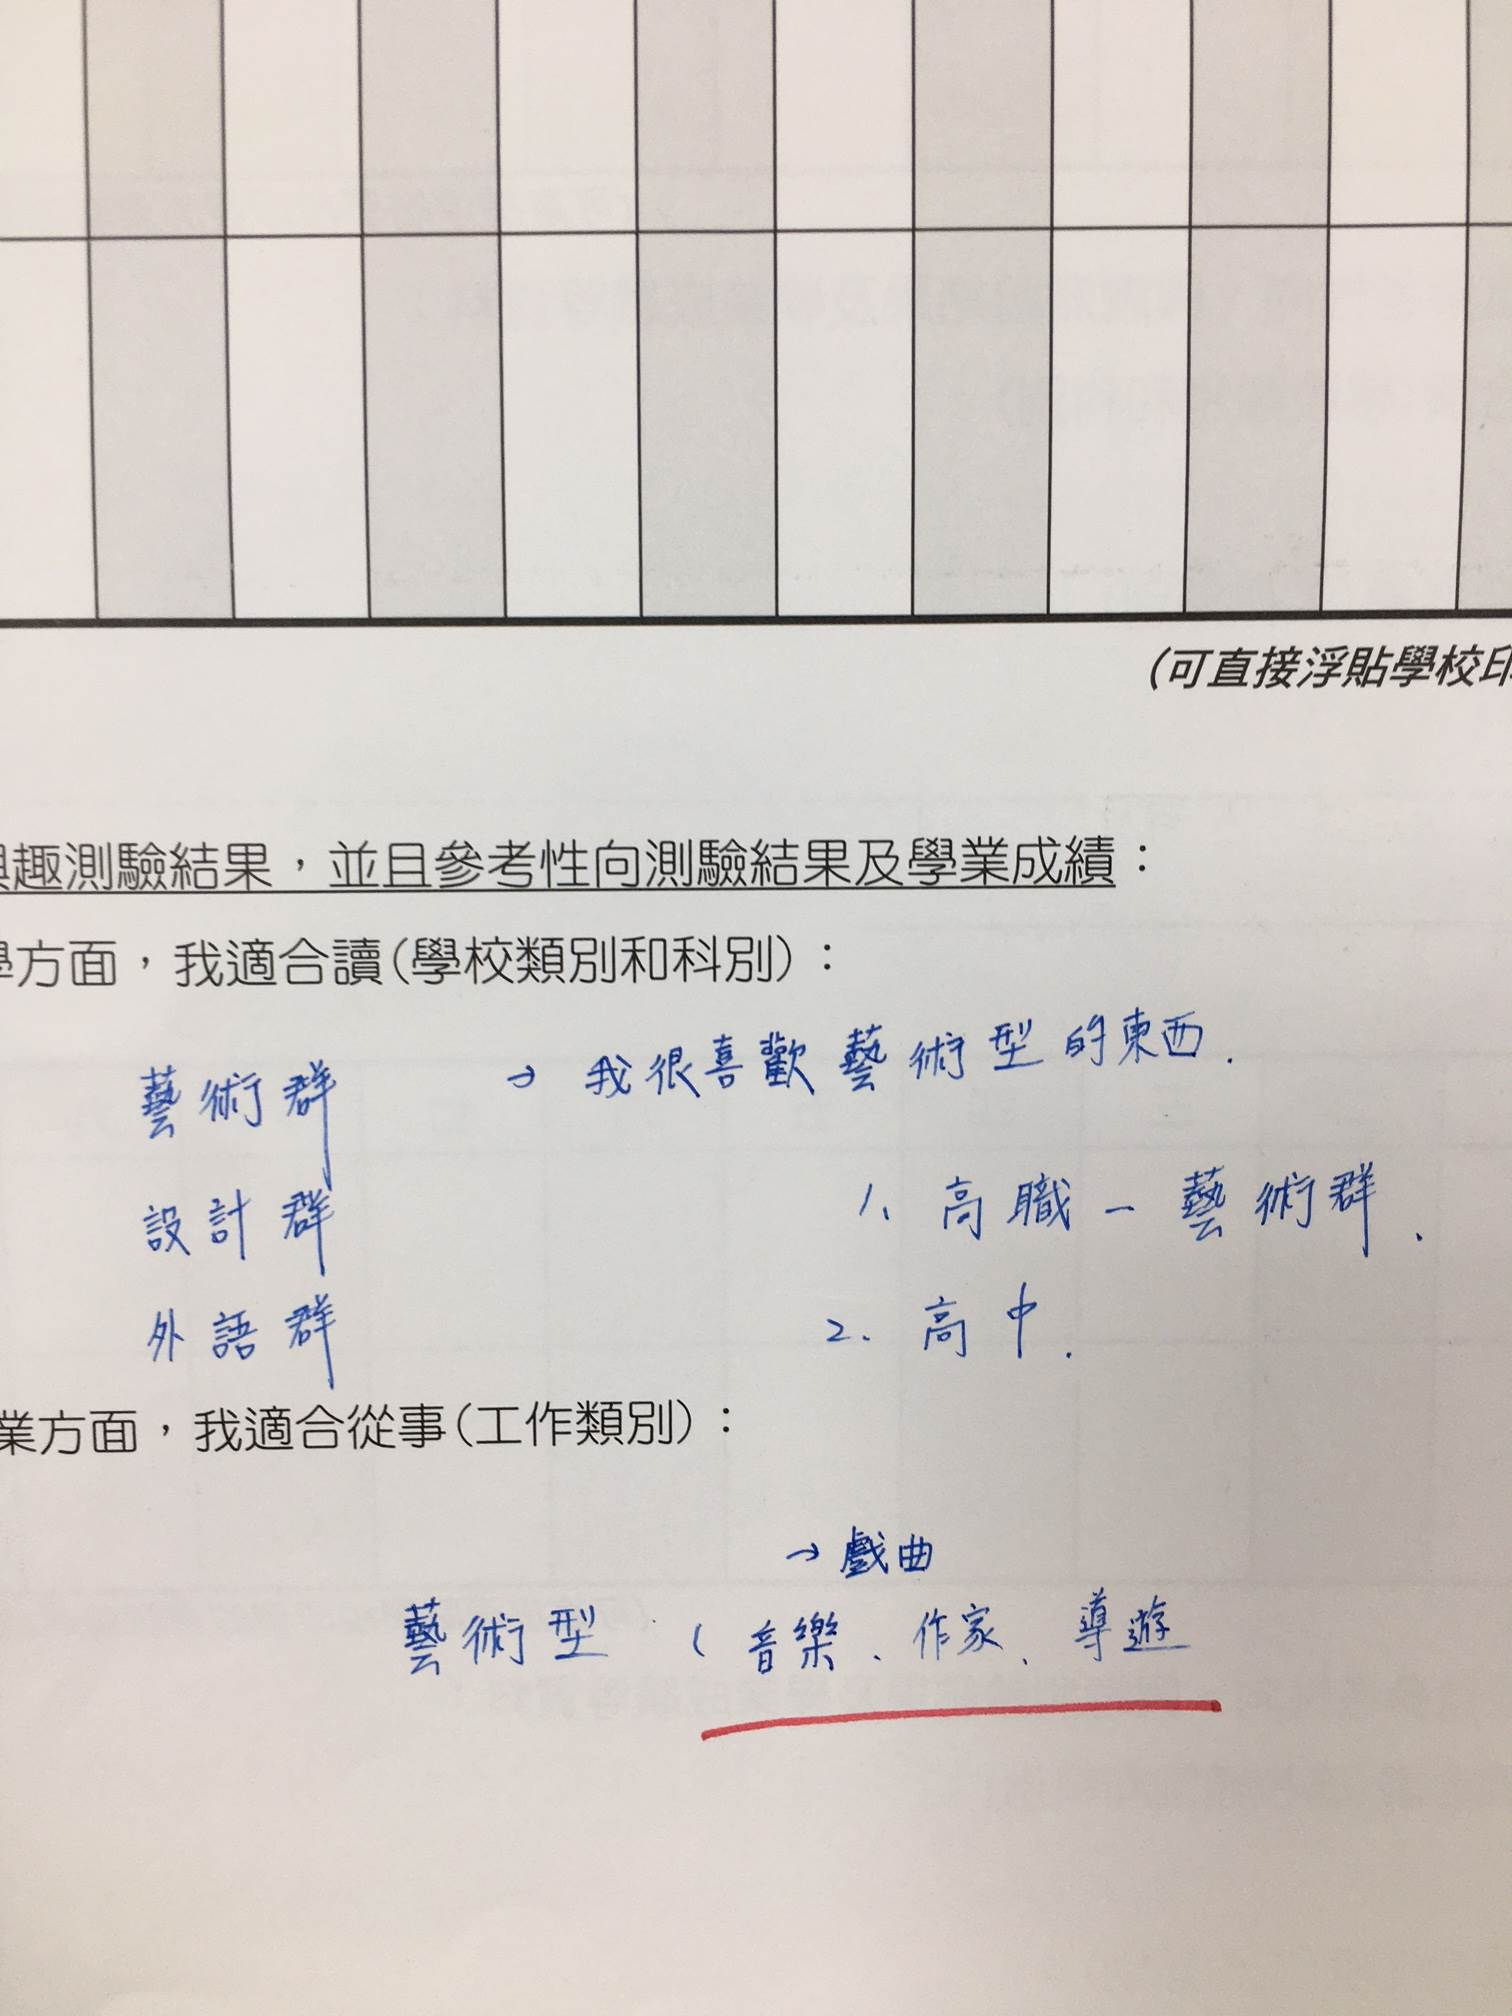 (可直接浮貼學校印
趣測驗結果，並且參考性向測驗結果及學業成績：
學方面，我適合讀(學校類別和科別)：
藝術群 → 我很喜歡藝術型的東西.
設計群 1、高職－藝術群.
外語群 2.高中.
業方面，我適合從事(工作類別)：
→戲曲
藝術型 (音樂、作家、導遊